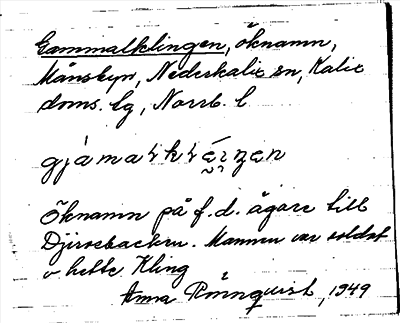 Gammalklingen, öknamn,
Månsbyn, Nederkalix sn, Kalix
doms. lg, Norrb. l
Öknamn på f. d. ägare till
Mannen var soldat
o hette Kling
Anna Rönnqvist, 1949